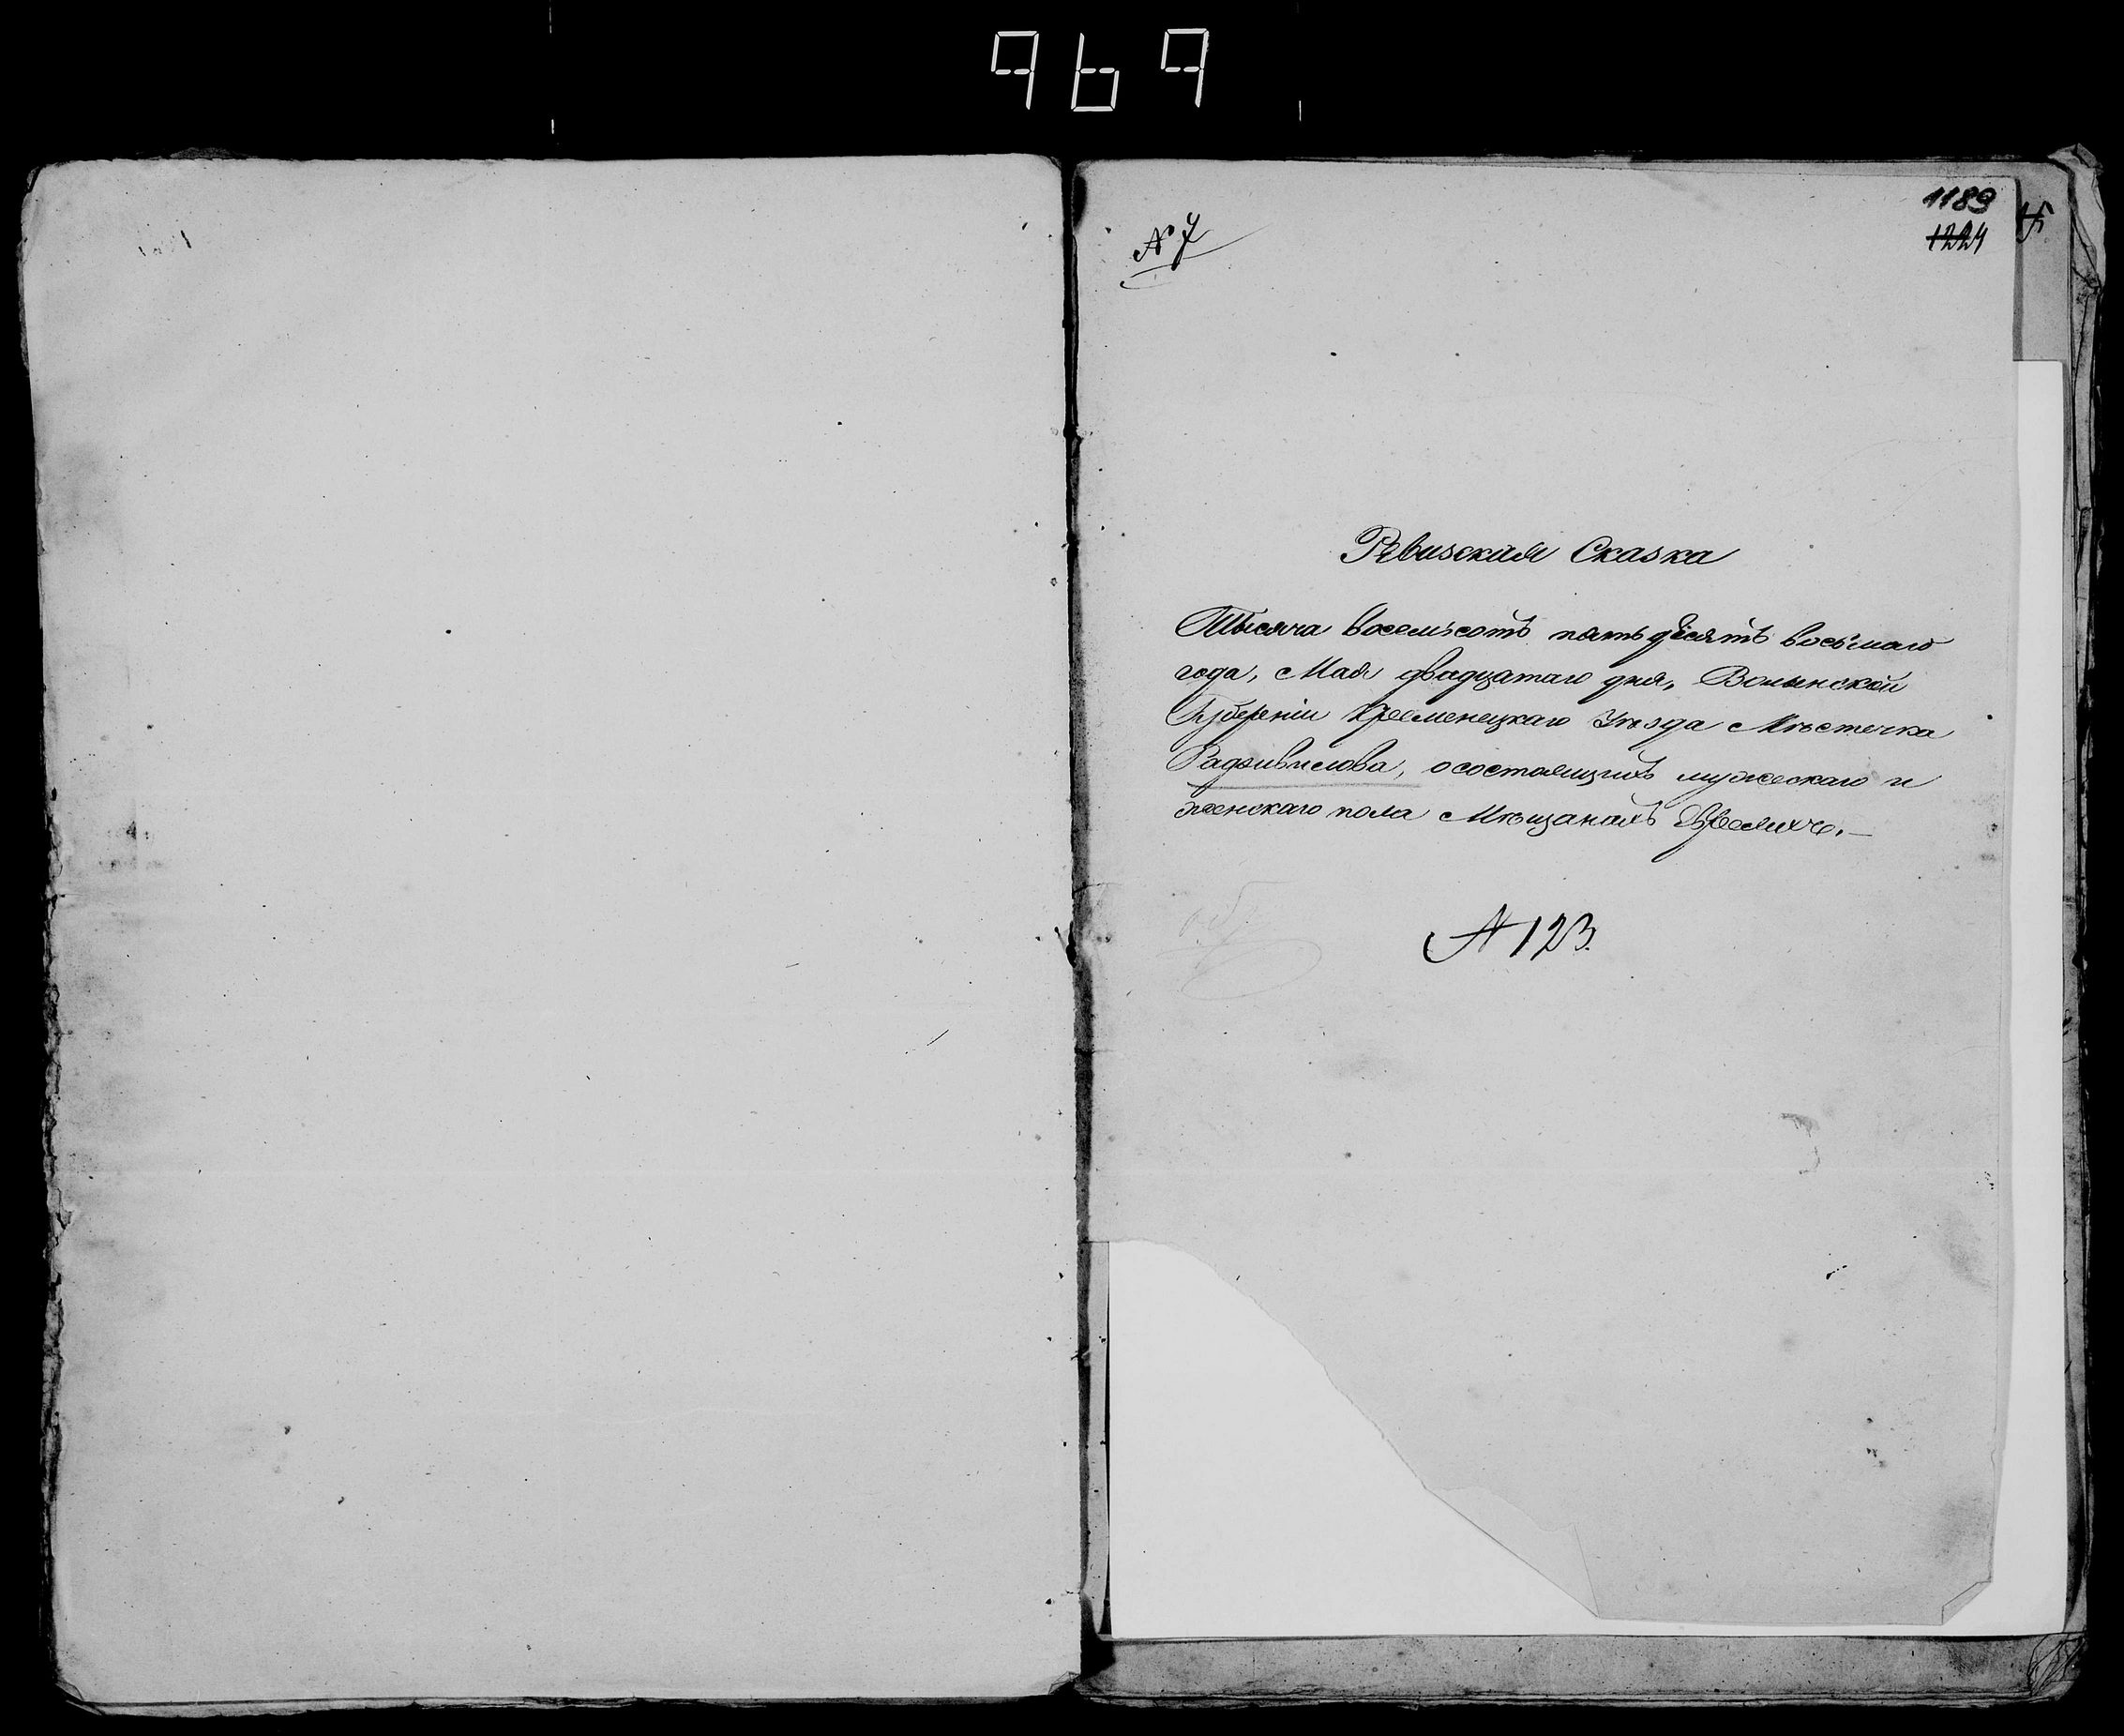 969
1189
1224
N 7
Ревизская Сказка
Тысяча восемьсотъ пятьдесятъ восьмаго
года, Мая двадцатаго дня, Волынской
Губерніи Кременецкаго Уѣзда Мѣстечка
Радзивилова, о состоящихъ мужескаго и
женскаго пола Мѣщанахъ Евреяхъ.—
N 123.